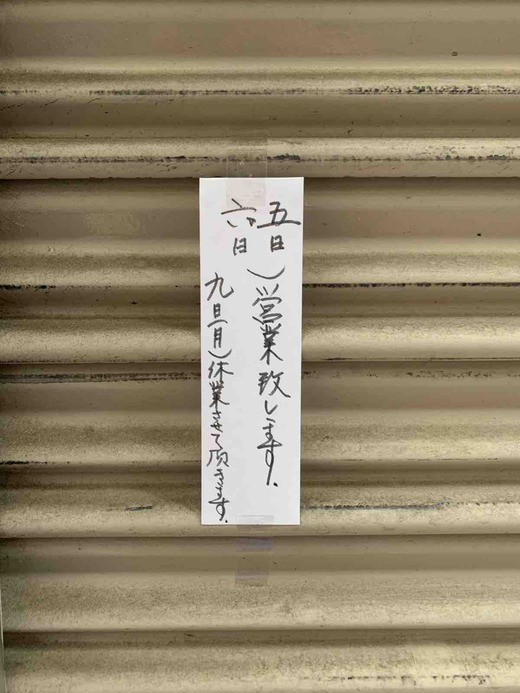 五日
六日
)営業致します.
九日(月)休業させて頂きます.